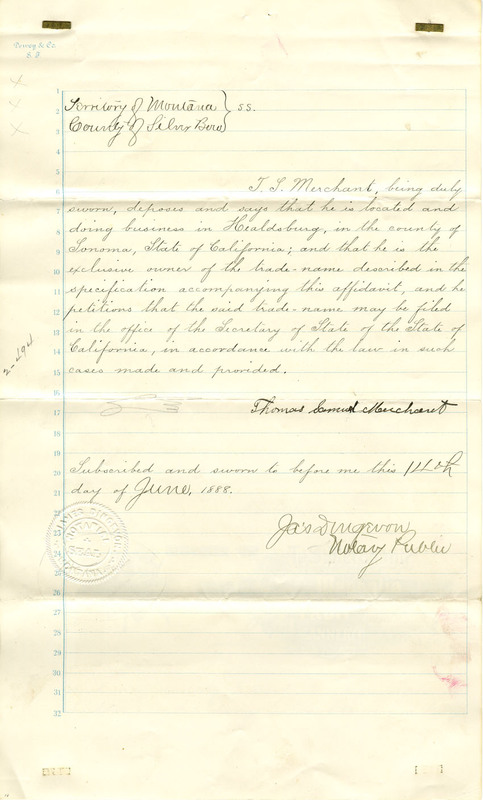 Dewey & Co.
S. F.
Territory of Montana } ss.
County of Silver Bow
T. S. Merchant, being duly
sworn, deposes and says that he is located and
doing business in Healdsburg, in the county of
Sonoma, State of California; and that he is the
exclusive owner of the trade-name described in the
specification accompanying this affidavit, and he
petitions that the said trade-name may be filed
in the office of the Secretary of State of the State of
California, in accordance with the law in such
cases made and provided.
Thomas Samuel Merchant
Subscribed and sworn to before me this 14th
day of June, 1888.
Notary Public
1
2
3
4
5
6
7
8
9
10
11
12
13
14
15
16
17
18
19
20
21
22
23
24
25
26
27
28
29
30
31
32